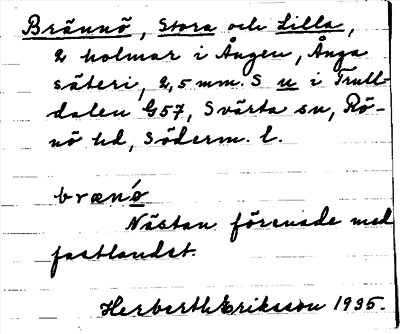 Brännö, Stora och Lilla,
2 holmar i Ången, Ånga
säteri, 2,5 mm. S u i Trutt-
dalen G57, Svärta sn, Rö-
nö hd, Söderm. l.
brænö́
Nästan förenade med
fastlandet.
Herberth Eriksson 1935.